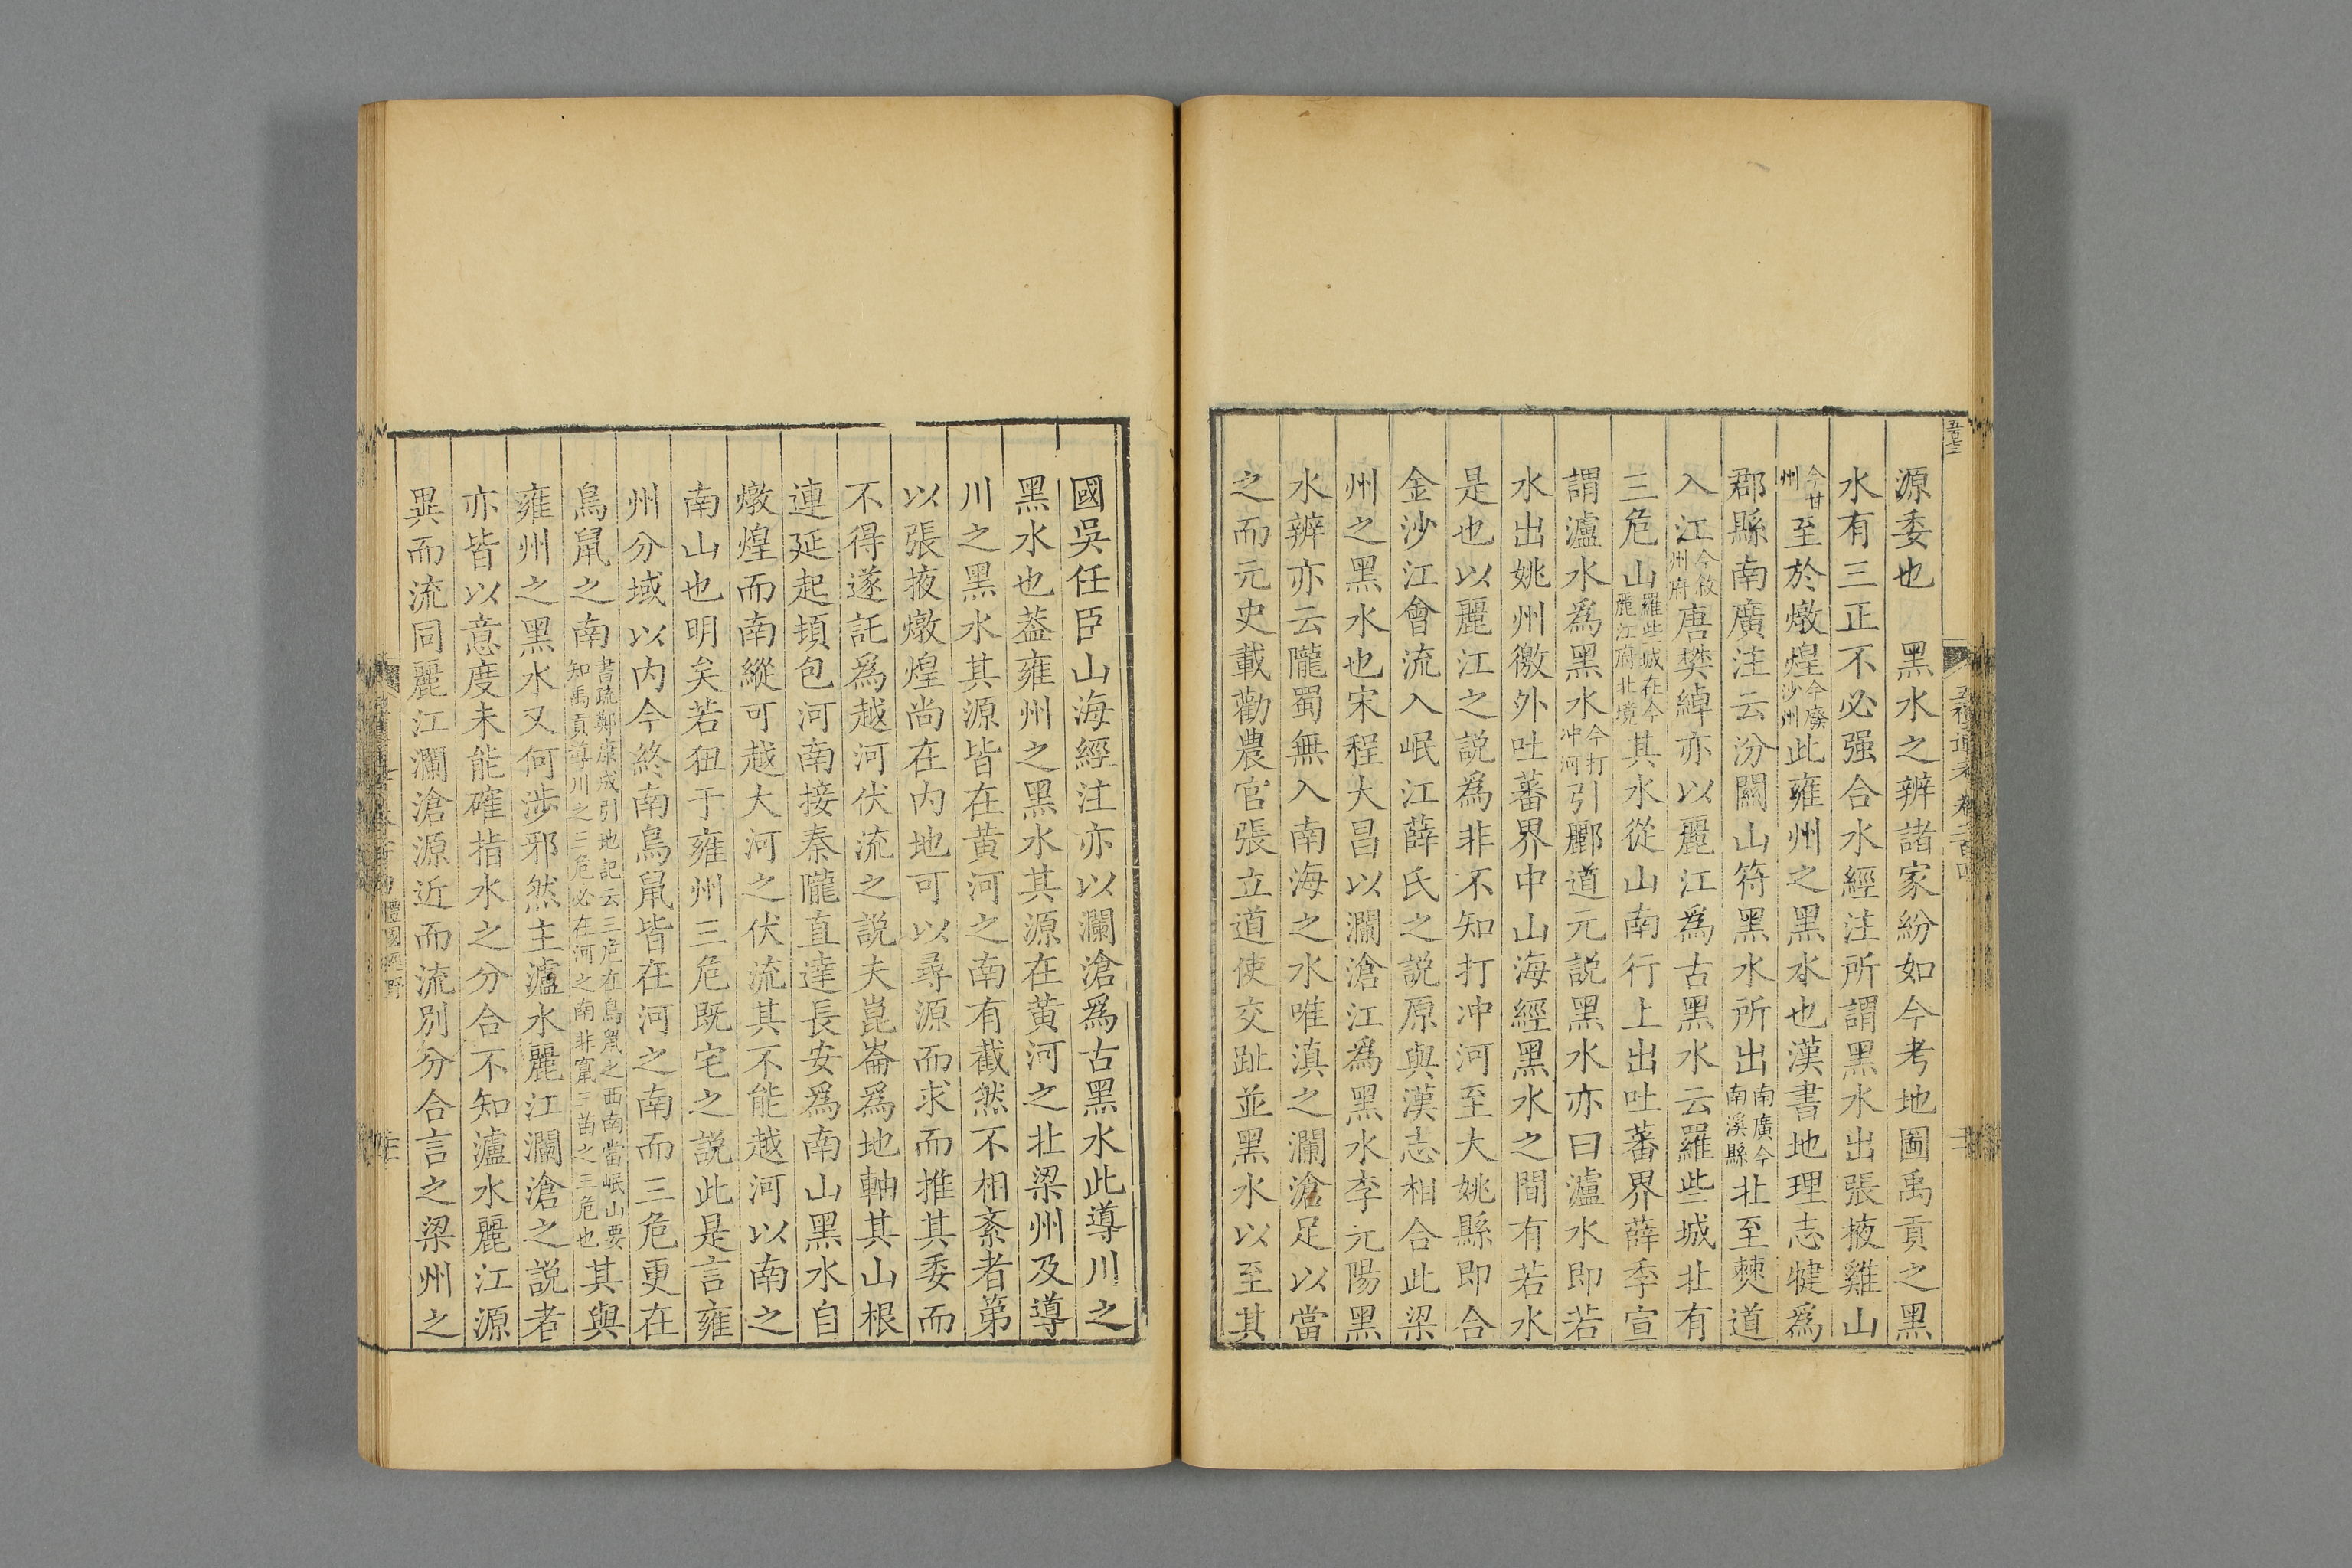 源委也　黑水之辨諸家紛如今考地圖禹貢之黑
水有三正不必强合水經注所謂黑水出張掖雞山
今甘州至於燉煌今廢沙州此雍州之黑水也漢書地理志犍爲
郡縣南廣注云汾關山符黑水所出南廣今南溪縣北至僰道
入江今敘州府唐樊綽亦以麗江爲古黑水云羅些城北有
三危山羅些城在今麗江府北境其水從山南行上出吐蕃界薛季宣
謂瀘水爲黑水今打冲河引酈道元説黑水亦曰瀘水即若
水出姚州徼外吐蕃界中山海經黑水之間有若水
是也以麗江之説爲非不知打冲河至大姚縣即合
金沙江會流入岷江薛氏之説原與漢志相合此梁
州之黑水也宋程大昌以瀾滄江爲黑水李元陽黑
水辨亦云隴蜀無入南海之水唯滇之瀾滄足以當
之而元史載勸農官張立道使交趾並黑水以至其
國吳任臣山海經注亦以瀾滄爲古黑水此導川之
黑水也葢雍州之黑水其源在黄河之北梁州及導
川之黑水其源皆在黄河之南有截然不相紊者第
以張掖燉煌尚在内地可以尋源而求而推其委而
不得遂託爲越河伏流之説夫崑崙爲地軸其山根
連延起頓包河南接秦隴直達長安爲南山黑水自
燉煌而南縱可越大河之伏流其不能越河以南之
南山也明矣若狃于雍州三危既宅之説此是言雍
州分域以内今終南鳥鼠皆在河之南而三危更在
鳥鼠之南書疏鄭康成引地記云三危在鳥鼠之西南當岷山要知禹貢導川之三危必在河之南非竄三苗之三危也其與
雍州之黑水又何涉邪然主瀘水麗江瀾滄之説者
亦皆以意度未能確指水之分合不知瀘水麗江源
異而流同麗江瀾滄源近而流別分合言之梁州之